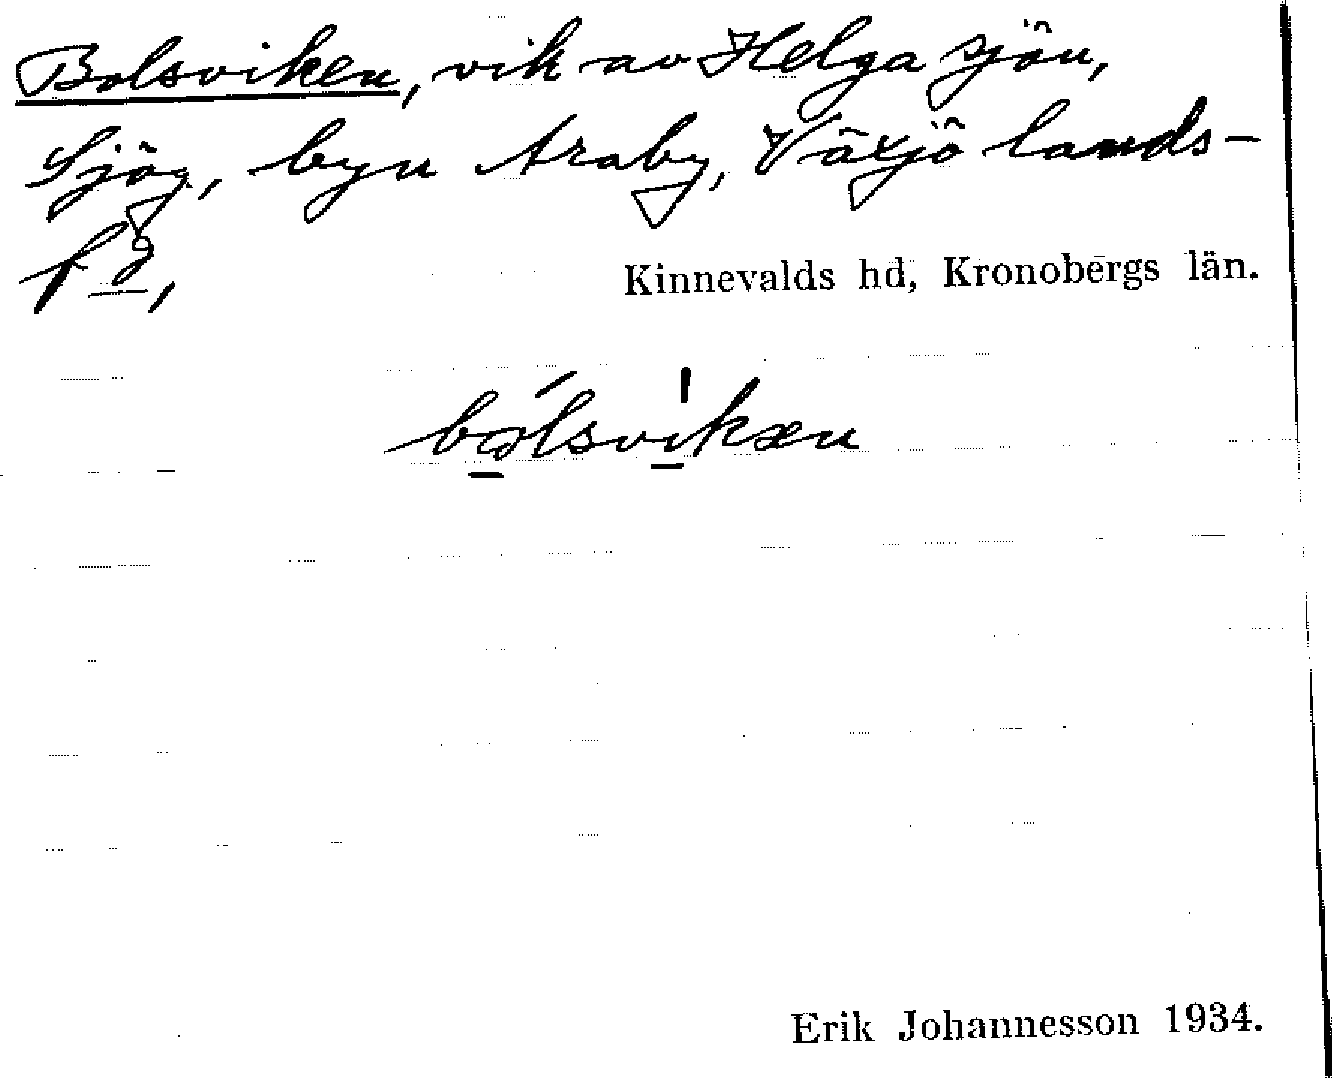 Bolsviken, vik av Helgasjön,
Sjög, byn Araby, Växjö lands-
fg,
Kinnevalds hd, Kronobergs län.
bólsvikæn
Erik Johannesson 1934.